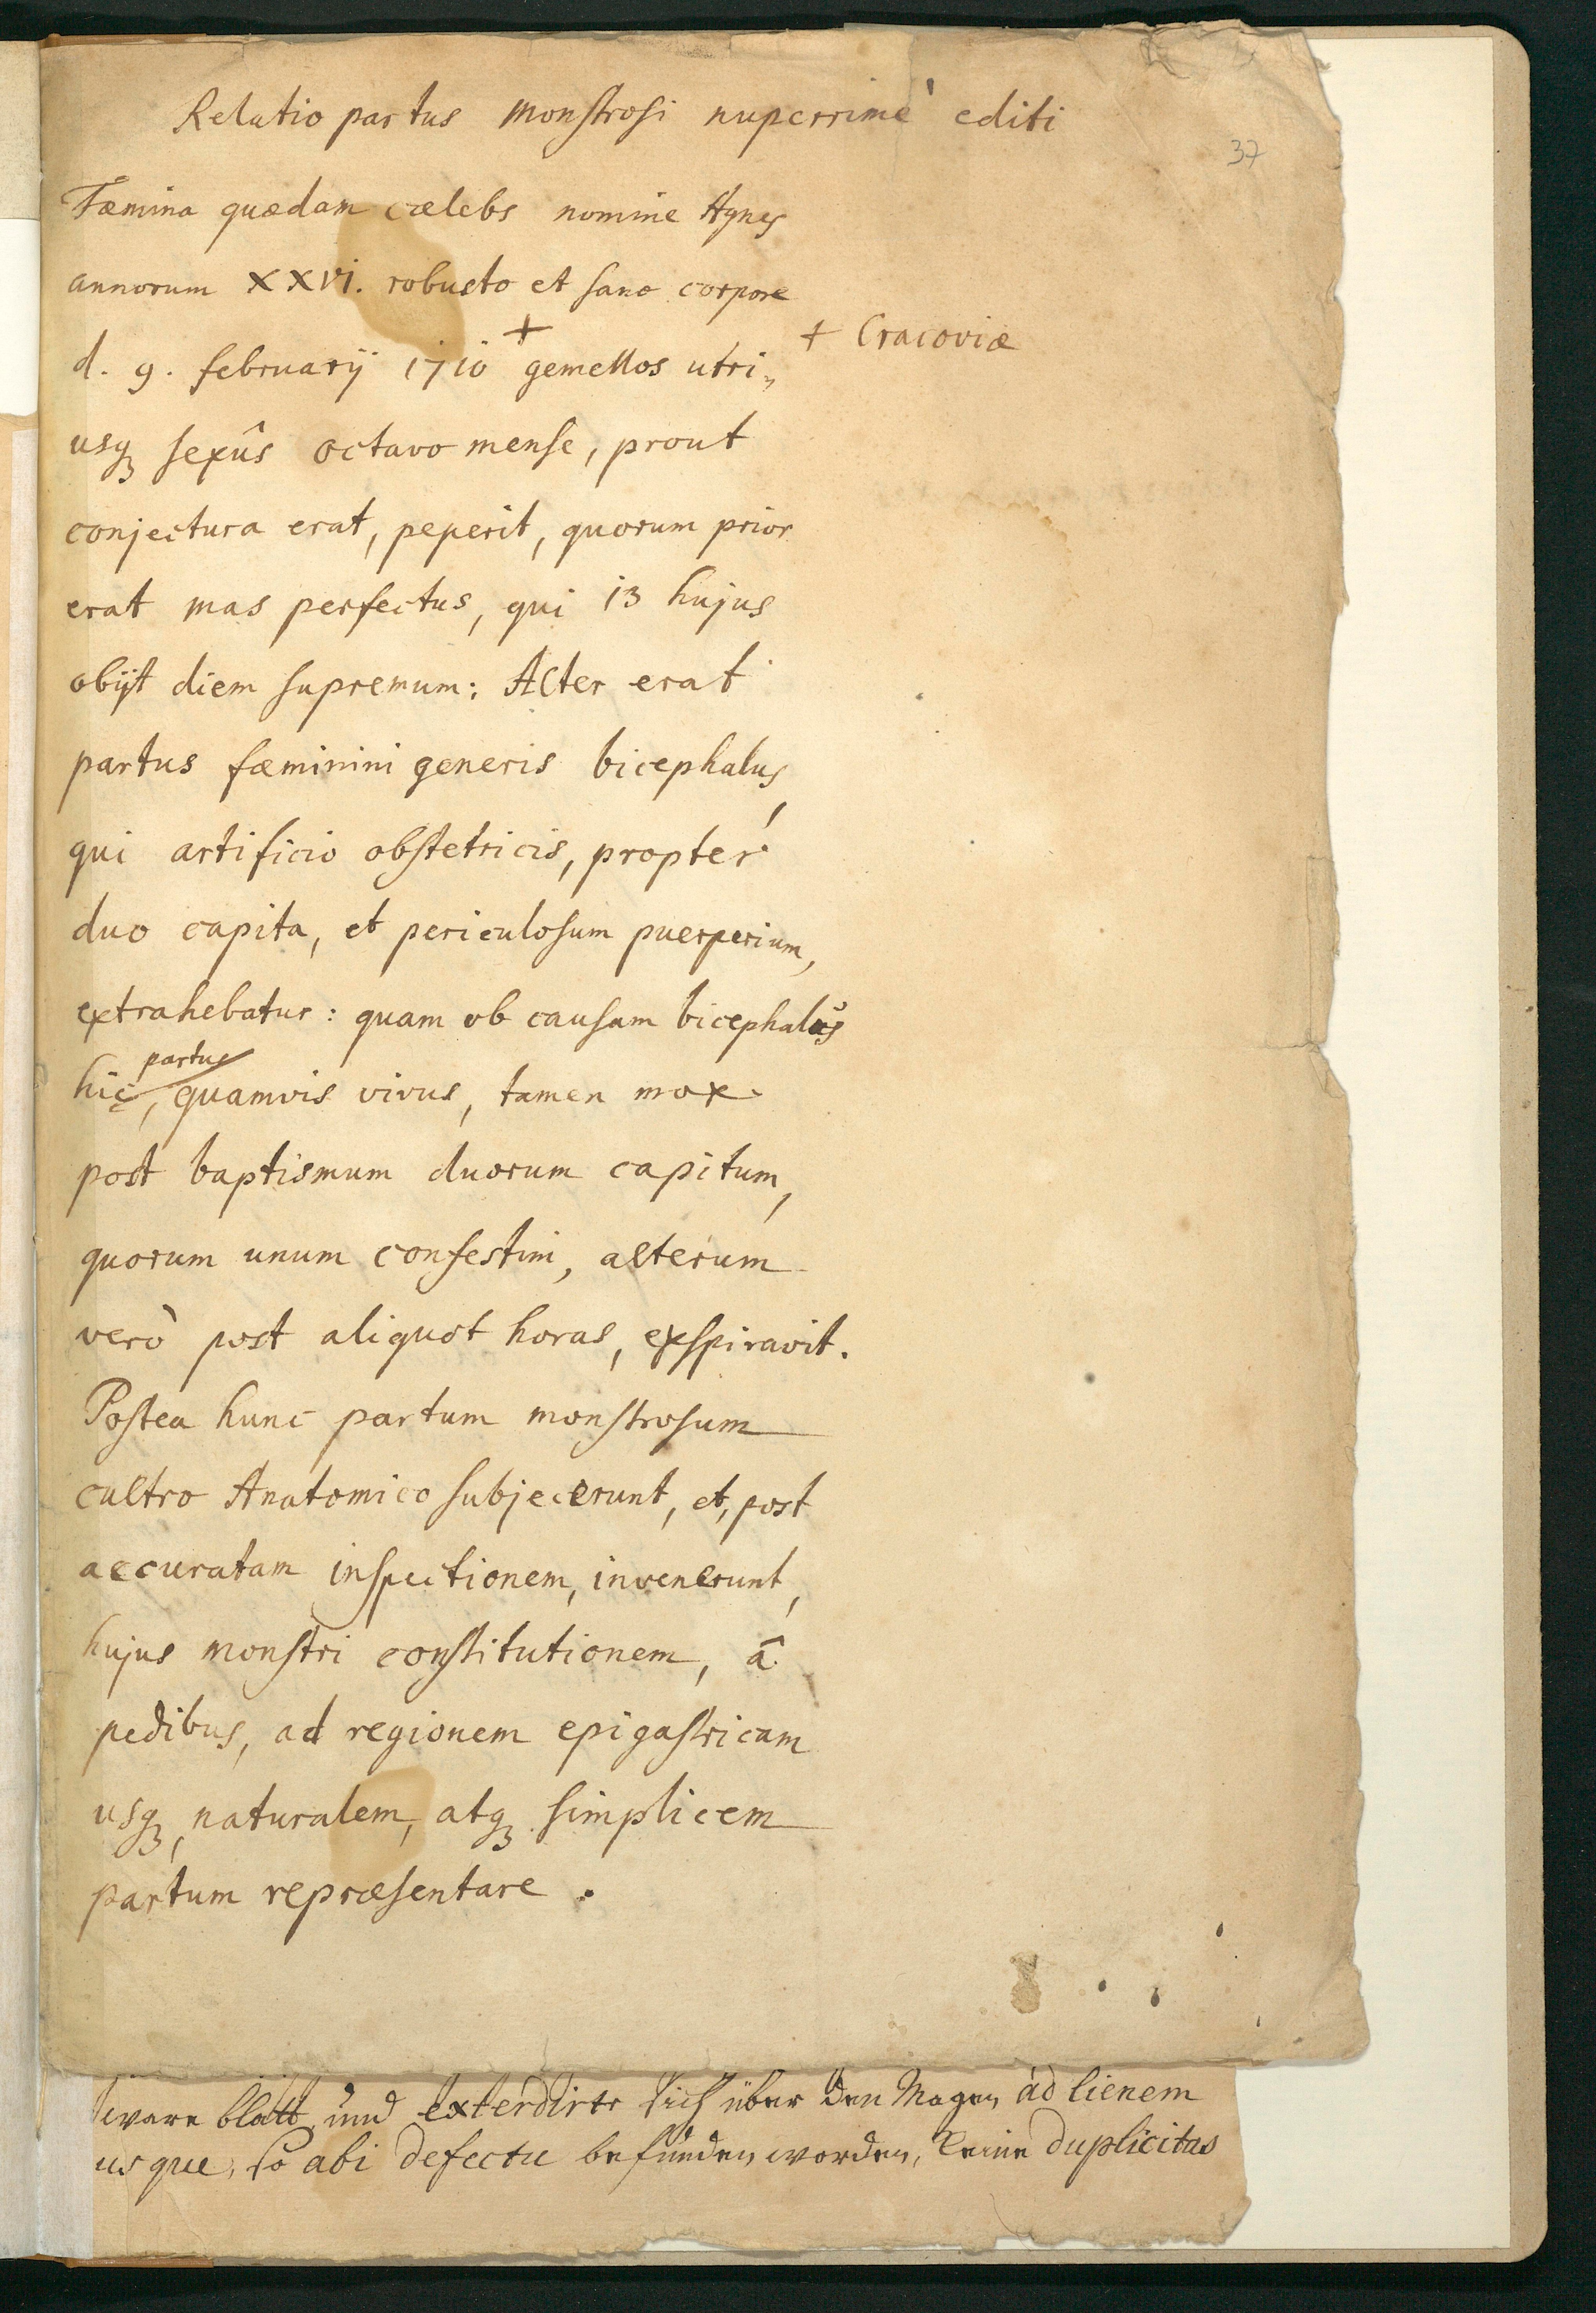 Relatio partus monstrosi nuperrimè editi
37
Fæmina quædam cælebs nomine Agnes
annorum XXVI. robusto et sano corpore
d. 9. februarij 1710 + gemellos utri„
+ Cracoviæ
usq₃ sexûs octavo mense, prout
conjectura erat, peperit, quorum prior
erat mas perfectus, qui 13 hujus
obijt diem supremum: Alter erat
partus fæminini generis bicephalus,
qui artificio obstetricis, propter
duo capita, et periculosum puerperium,
extrahebatur: quam ob causam bicephalus
partus
hic, quamvis vivus, tamen mox
post baptismum duorum capitum,
quorum unum confestim, alterum
verò post aliquot horas, exspiravit.
Postea hunc partum monstrosum
cultro Anatomico subjecerunt, et, post
accuratam inspectionem, invenerunt,
hujus monstri constitutionem, â
pedibus, ad regionem epigastricam
usq₃, naturalem, atq₃ simplicem
partum repræsentare.
ware blatt und extendirte sich über den Magen ad lienem
usque, so abi defectu befunden worden, keine duplicitas